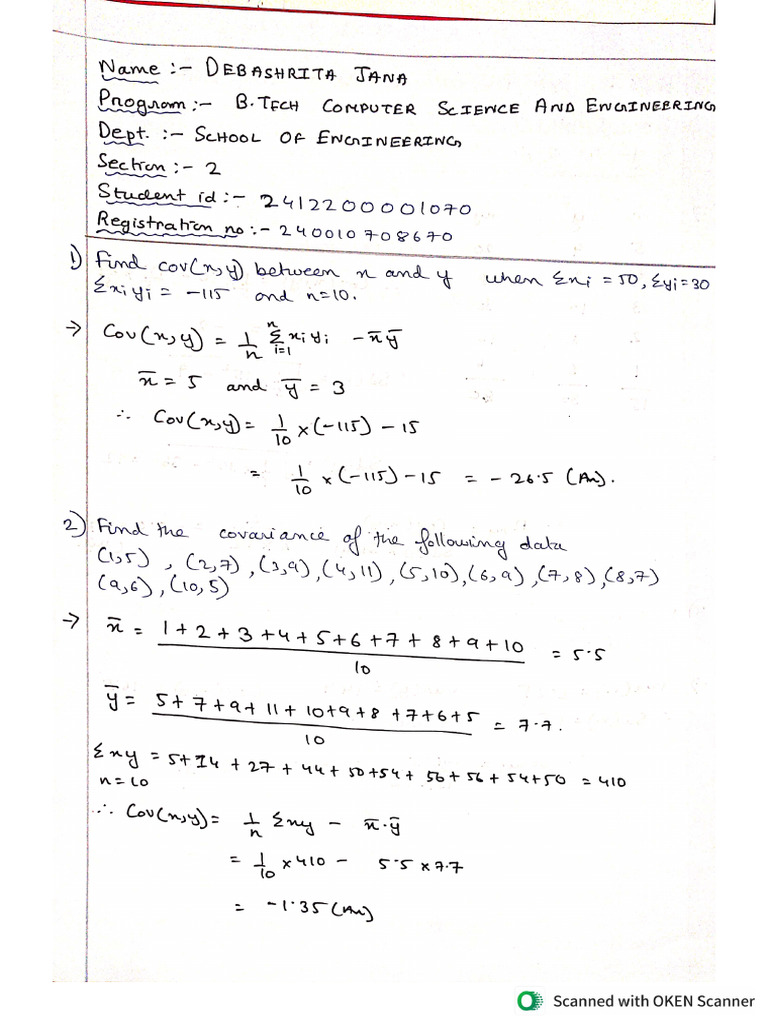 Name :- DEBASHRITA JANA
Program :- B.TECH COMPUTER SCIENCE AND ENGINEERING
Dept. :- SCHOOL OF ENGINEERING
Section :- 2
Student id :- 2412200001070
Registration no :- 240010708670
1) Find cov(x,y) between x and y when Σxi = 50, Σyi = 30
Σxiyi = -115 and n=10.
→ Cov(x,y) = 1/n Σ_{i=1}^{n} xiyi - x̄ȳ
x̄ = 5 and ȳ = 3
∴ Cov(x,y) = 1/10 × (-115) - 15
= 1/10 × (-115) - 15 = - 26.5 (An).
2) Find the covariance of the following data
(1,5), (2,7), (3,9), (4,11), (5,10), (6,9), (7,8), (8,7)
(9,6), (10,5)
→ x̄ = (1+2+3+4+5+6+7+8+9+10)/10 = 5.5
ȳ = (5+7+9+11+10+9+8+7+6+5)/10 = 7.7.
Σxy = 5+14+27+44+50+54+56+56+54+50 = 410
n=10
∴ Cov(x,y) = 1/n Σxy - x̄.ȳ
= 1/10 × 410 - 5.5 × 7.7
= -1.35 (An)
Scanned with OKEN Scanner